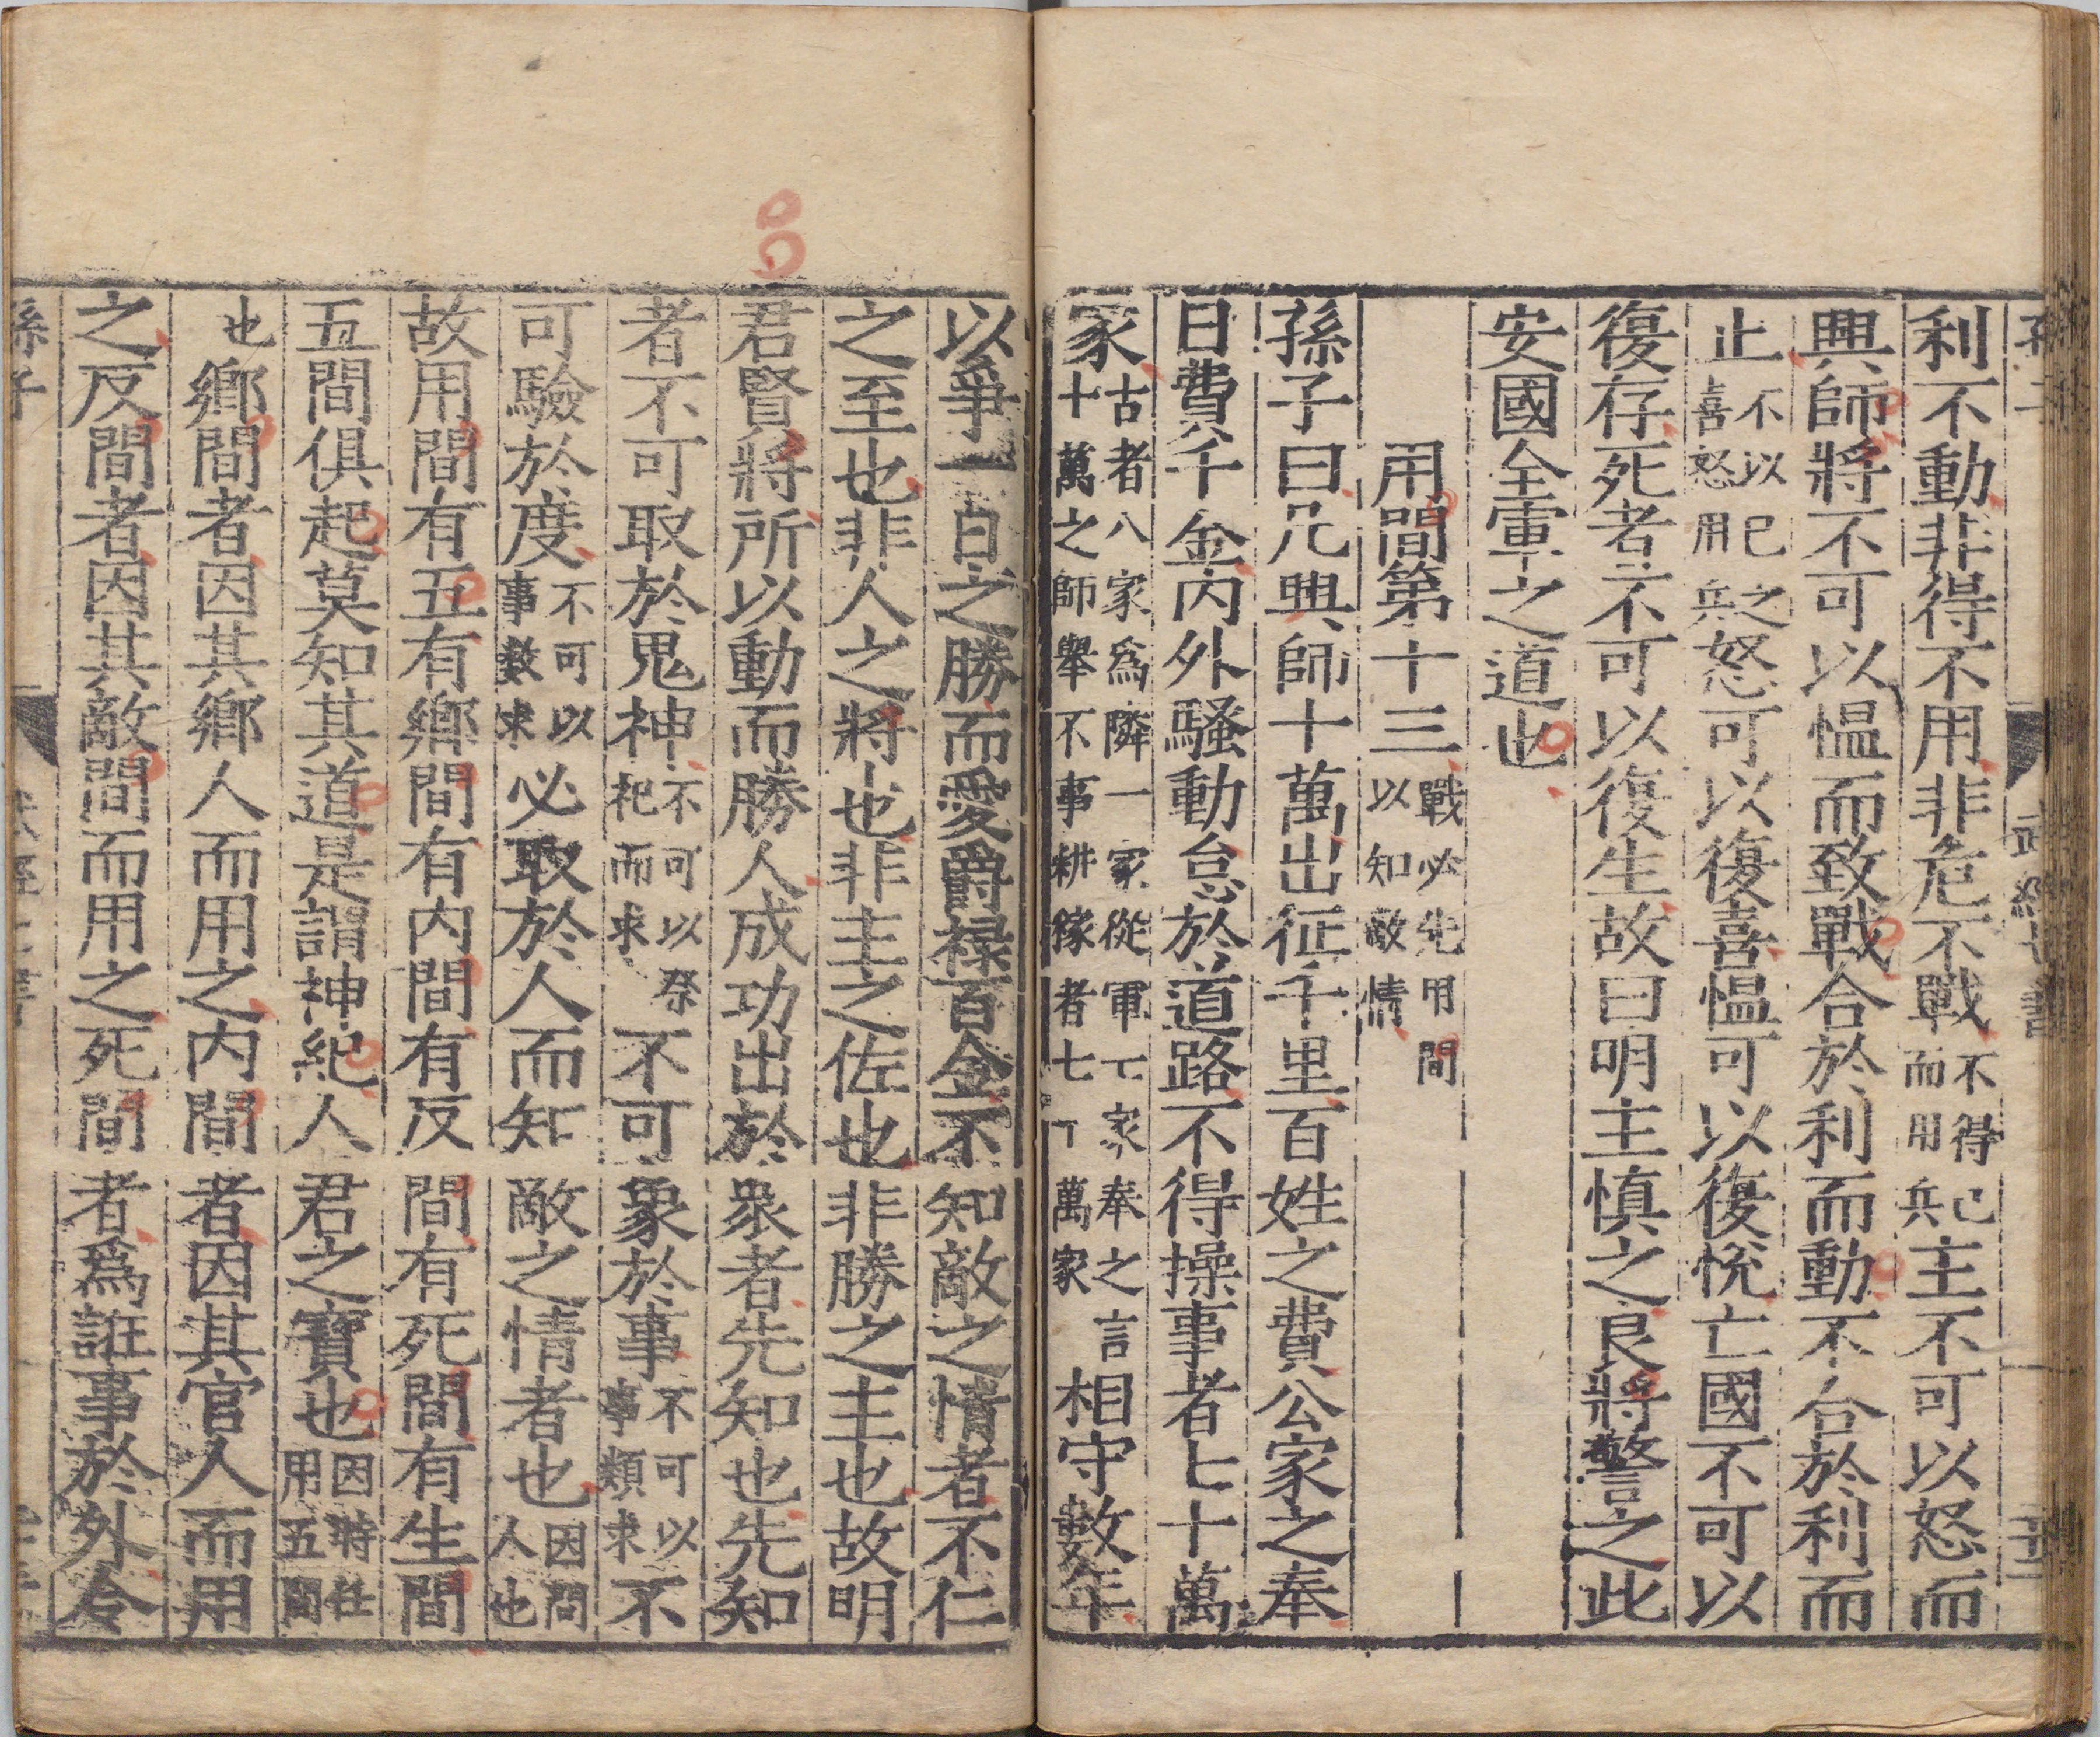 利不動非得不用非危不戰不得已而用兵主不可以怒而
興師將不可以愠而致戰合於利而動不合於利而
止不以已之喜怒用兵怒可以復喜愠可以復悅亡國不可以
復存死者不可以復生故曰明主慎之良將警之此
安國全軍之道也
用間第十三戰必先用間以知敵情
孫子曰凡興師十萬出征千里百姓之費公家之奉
日費千金內外騷動怠於道路不得操事者七十萬
家古者八家爲隣一家從軍七家奉之言十萬之師舉不事耕稼者七十萬家相守數年
以爭一日之勝而愛爵祿百金不知敵之情者不仁
之至也非人之將也非主之佐也非勝之主也故明
君賢將所以動而勝人成功出於衆者先知也先知
者不可取於鬼神不可以祭祀而求不可象於事不可以事類求不
可驗於度不可以事數求必取於人而知敵之情者也因問人也
故用間有五有鄉間有内間有反間有死間有生間
五間俱起莫知其道是謂神紀人君之寶也因時任用五間
也鄉間者因其鄉人而用之内間者因其官人而用
之反間者因其敵間而用之死間者爲誑事於外令
孫子